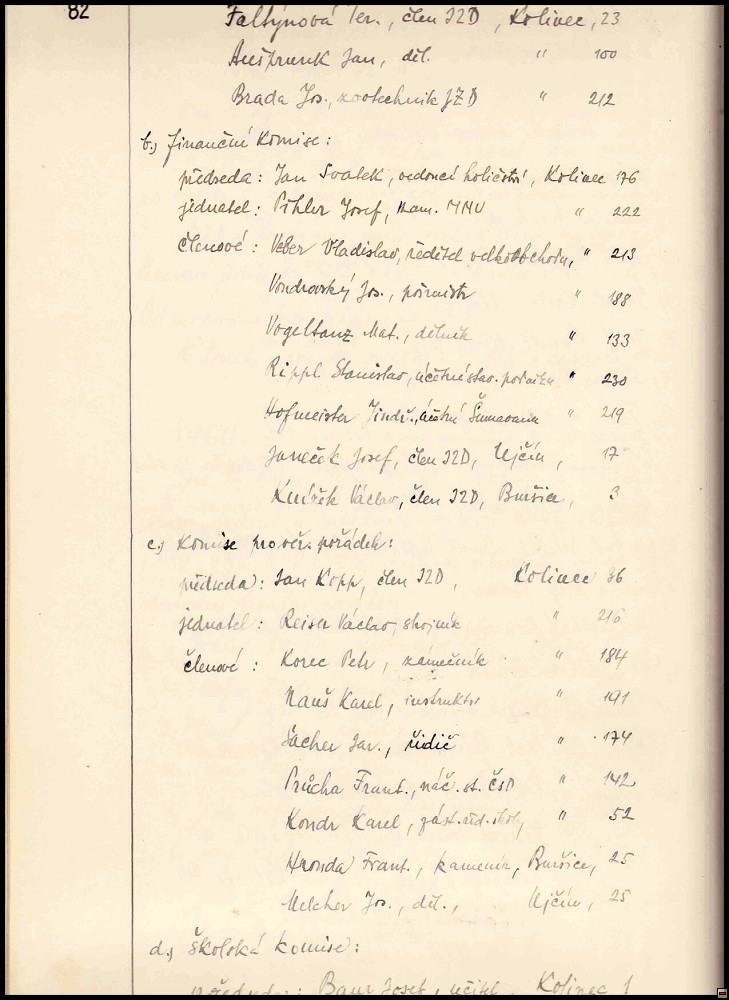 82
Faltýnová Ter., člen JZD, Kolinec, 23
Aušprunk Jan, děl. " 100
Brada Jos., zootechnik JZD " 212
b.) finanční komise:
předseda: Jan Svatek, vedoucí holičství, Kolinec 176
jednatel: Pihler Josef, MNV " 222
členové: Veber Vladislav, ředitel velkoobchodu, " 213
Vondrovský Jos., " 188
Vogeltanz Mat., dělník " 133
Rippl Stanislav, účetní stav. podniku " 230
Hofmeister Jindř., účetní Šumavanu " 219
Janeček Josef, člen JZD, Ujčín, 17
Knížek Václav, člen JZD, Buršice, 3
c.) Komise pro veř. pořádek:
předseda: Jan Kopp, člen JZD, Kolinec 36
jednatel: Reiser Václav, strojník " 216
členové: Korec Petr, zámečník " 184
Nauš Karel, instruktor " 191
Šacher Jar., řidič " 174
Průcha Frant., náč. st. ČSD " 142
Kondr Karel, zást. řed. školy " 52
Hronda Frant., kameník, Buršice, 25
Melcher Jos., děl., Ujčín, 25
d.) školská komise:
předseda: Baur Josef, učitel, Kolinec 1